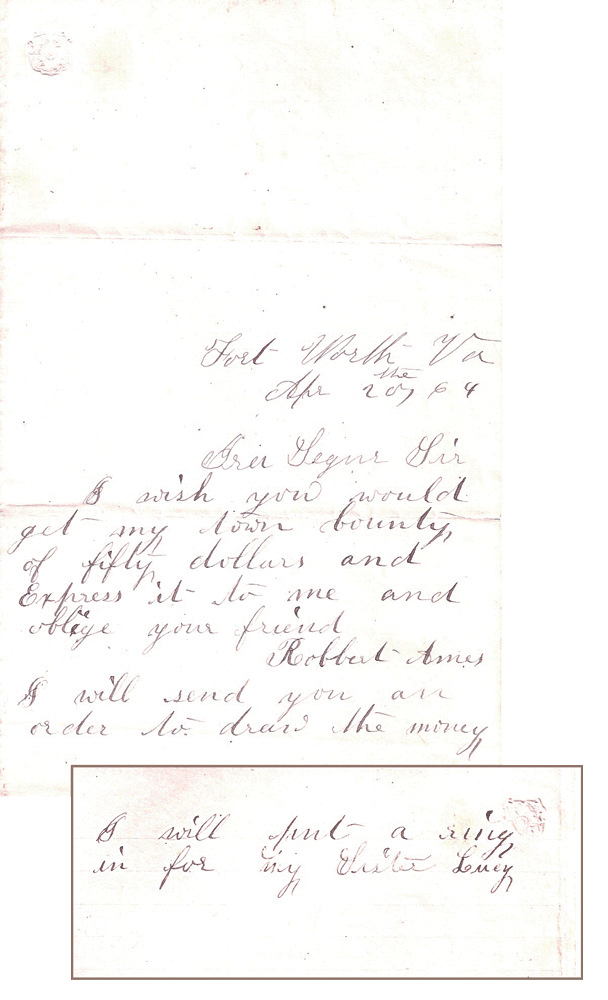 Fort Worth Va
Apr 20 the 64
Segur Sir
I wish you would
get my town bounty
of fifty dollars and
Express it to me and
oblige your friend
Robbert Ames
I will send you an
order to draw the money
I will put a ring
in for my Sister Lucy